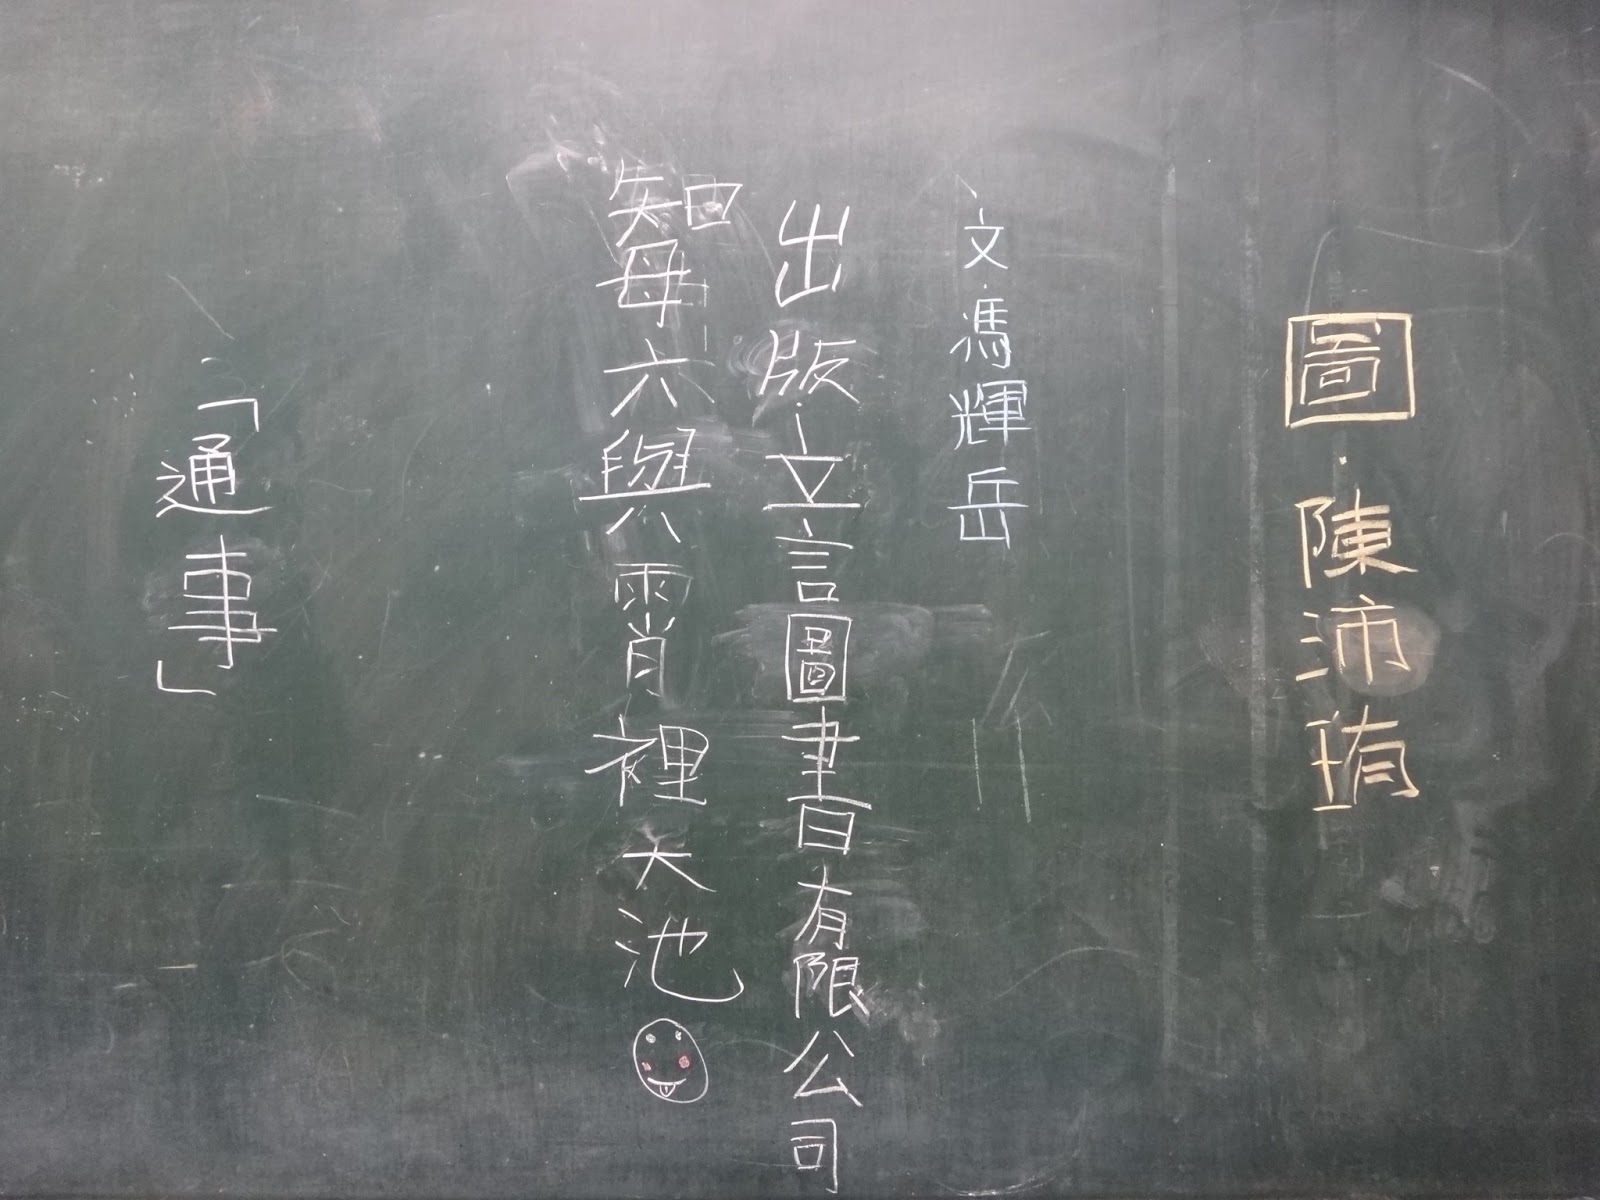 圖·陳沛珛
文·馮輝岳
出版·立言圖書有限公司
知母六與霄裡大池
「通事」